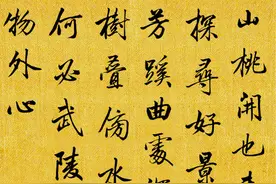 山桃開也
探尋好景
芳蹊曲處
樹疊傍水
何必武陵
物外心